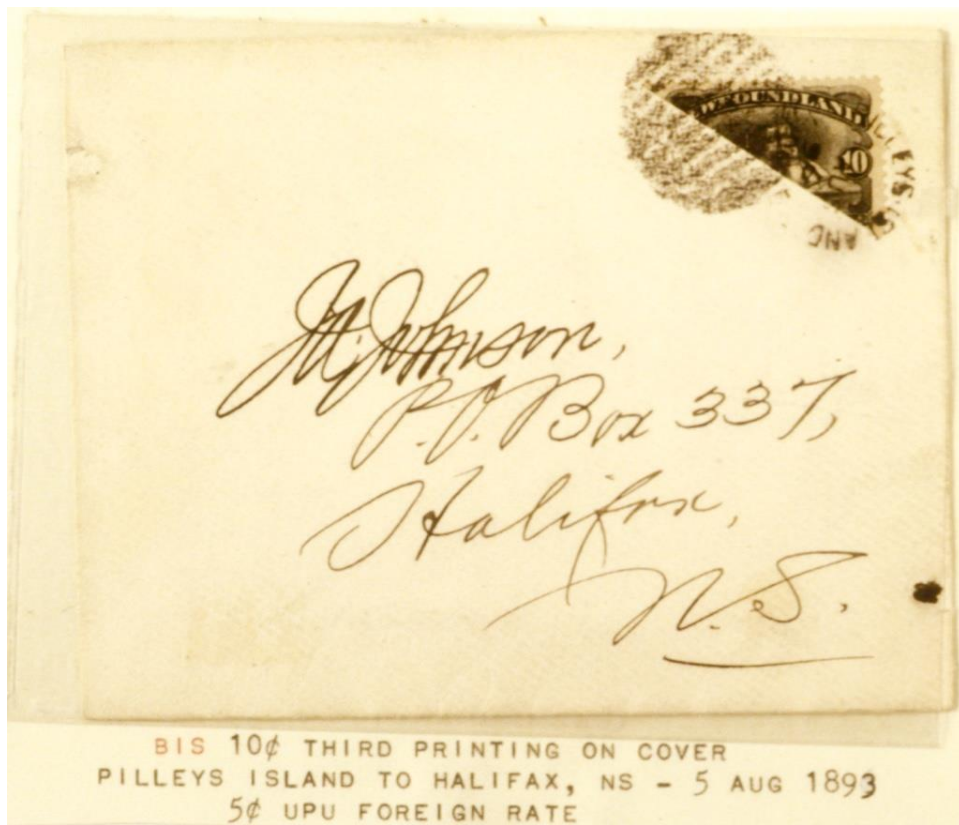 NEWFOUNDLAND
10
PILLEYS ISLAND
J.W. Johnson,
P.O. Box 337,
Halifax,
N.S.
BIS 10¢ THIRD PRINTING ON COVER
PILLEYS ISLAND TO HALIFAX, NS - 5 AUG 1893
5¢ UPU FOREIGN RATE